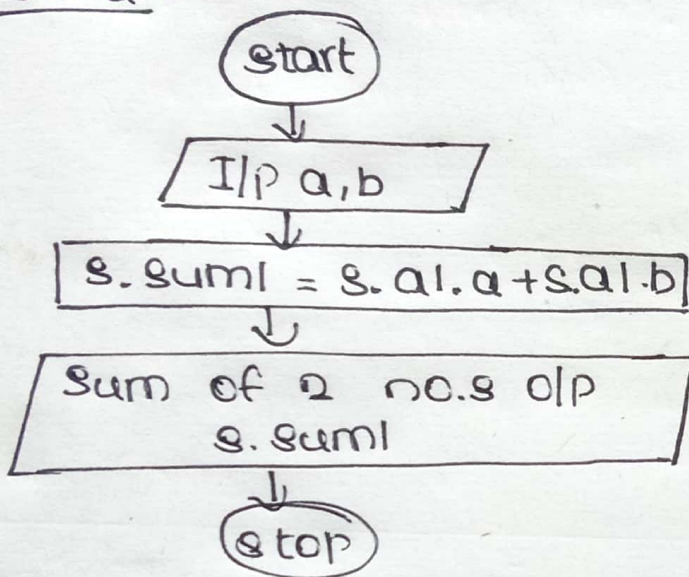 start
I/p a, b
s.sum1 = s.a1.a + s.a1.b
Sum of 2 no.s o/p
s.sum1
stop